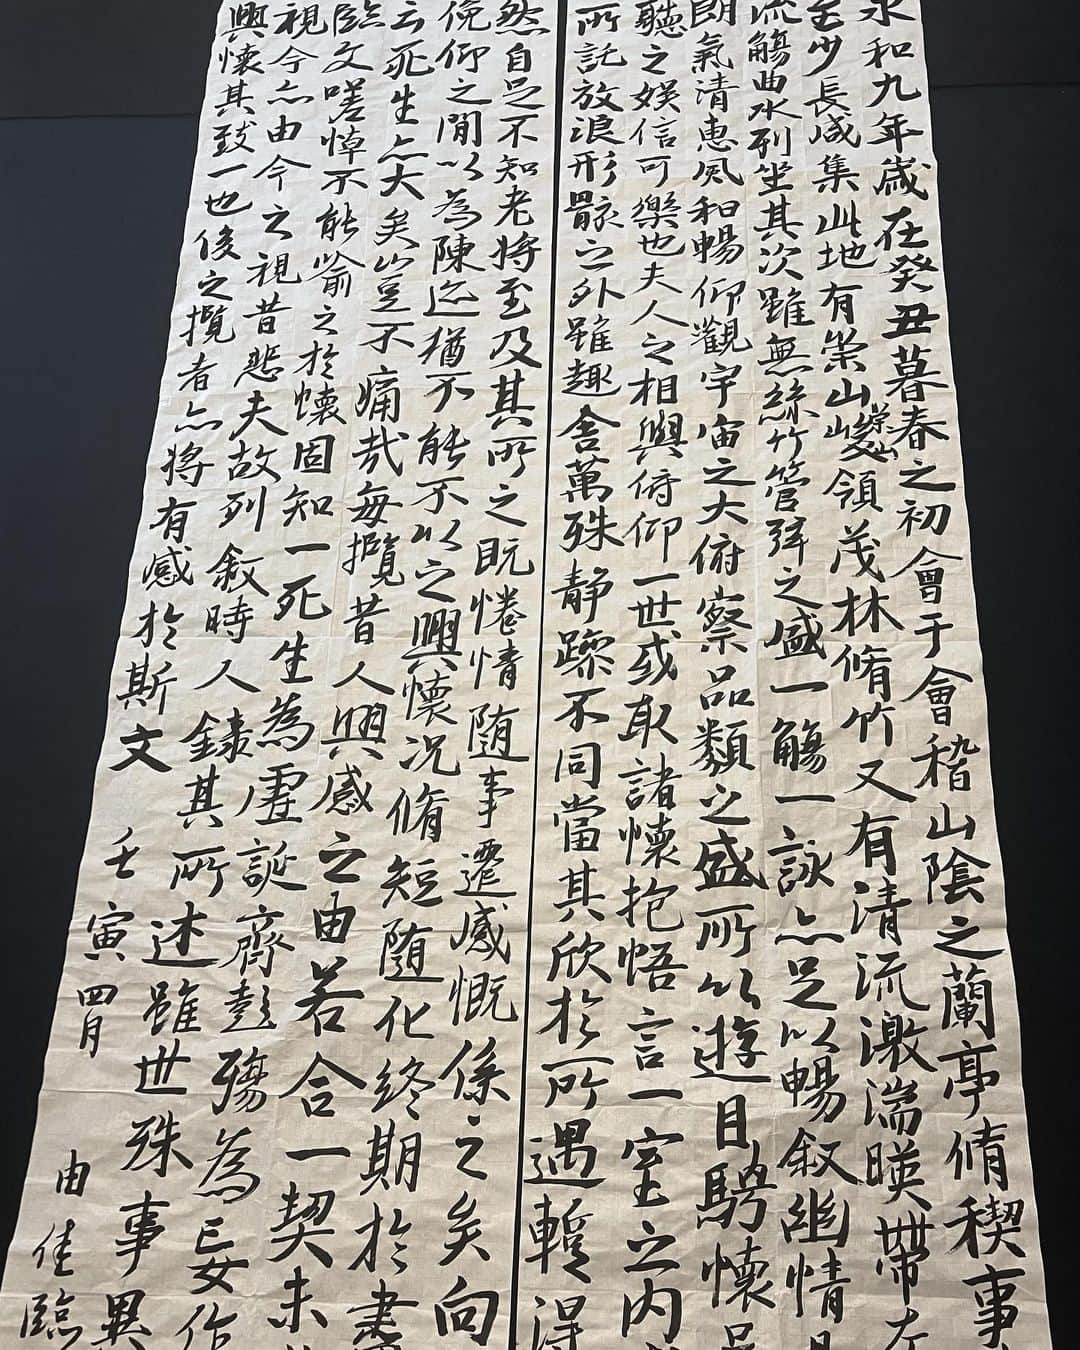 永和九年歲在癸丑暮春之初會于會稽山陰之蘭亭脩稧事
至少長咸集此地有崇山崇山峻領茂林脩竹又有清流激湍暎帶左
流觴曲水列坐其次雖無絲竹管弦之盛一觴一詠亦足以暢叙幽情
朗氣清惠風和暢仰觀宇宙之大俯察品類之盛所以遊目騁懷
聽之娛信可樂也夫人之相與俯仰一世或取諸懷抱悟言一室之内
所託放浪形骸之外雖趣舍萬殊静躁不同當其欣於所遇蹔得
然自足不知老將至及其所之既惓情随事遷感慨係之矣向
俛仰之閒以為陳迹猶不能不以之興懷况脩短随化終期於盡
云死生亦大矣豈不痛哉每攬昔人興感之由若合一契未
臨文嗟悼不能喻之於懷固知一死生為虛誕齊彭殤為妄作
視今亦由今之視昔悲夫故列叙時人錄其所述雖世殊事異
興懷其致一也後之攬者亦將有感於斯文
壬寅四月 由佳臨